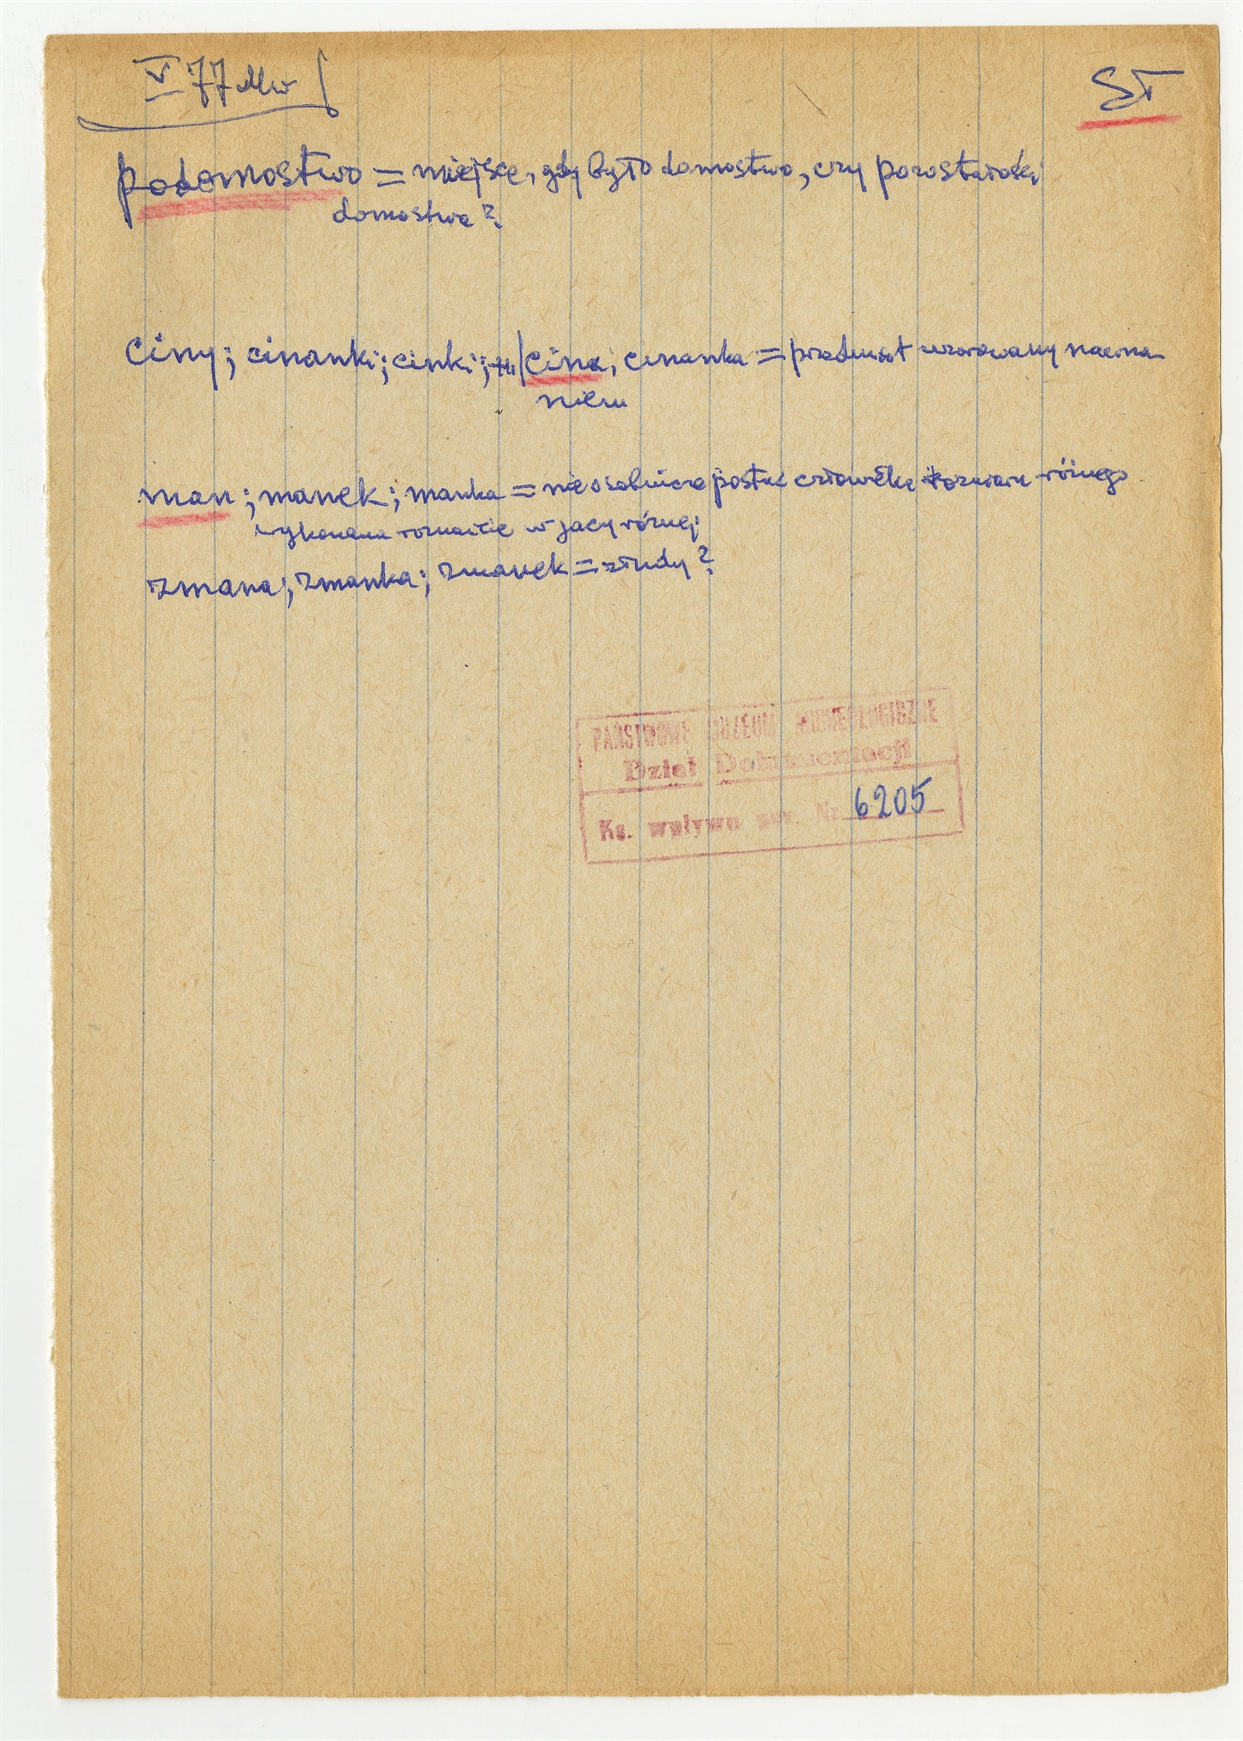 V 77 Mw
SŁ
podomostwo = miejsce, gdy było domostwo, czy pozostałości
domostwa?
Ciny; cinanki; cinki; cina; cinanka = przedmiot wzorowany na
man; manek; manka = nieosobnicza postać człowieka rozmiaru różnego
wykonana rozmaicie w jacy różnej
zmana; zmanka; zmanek = złudy?
PAŃSTWOWE MUZEUM ARCHEOLOGICZNE
Dział Dokumentacji
Ks. wpływu Nr. 6205